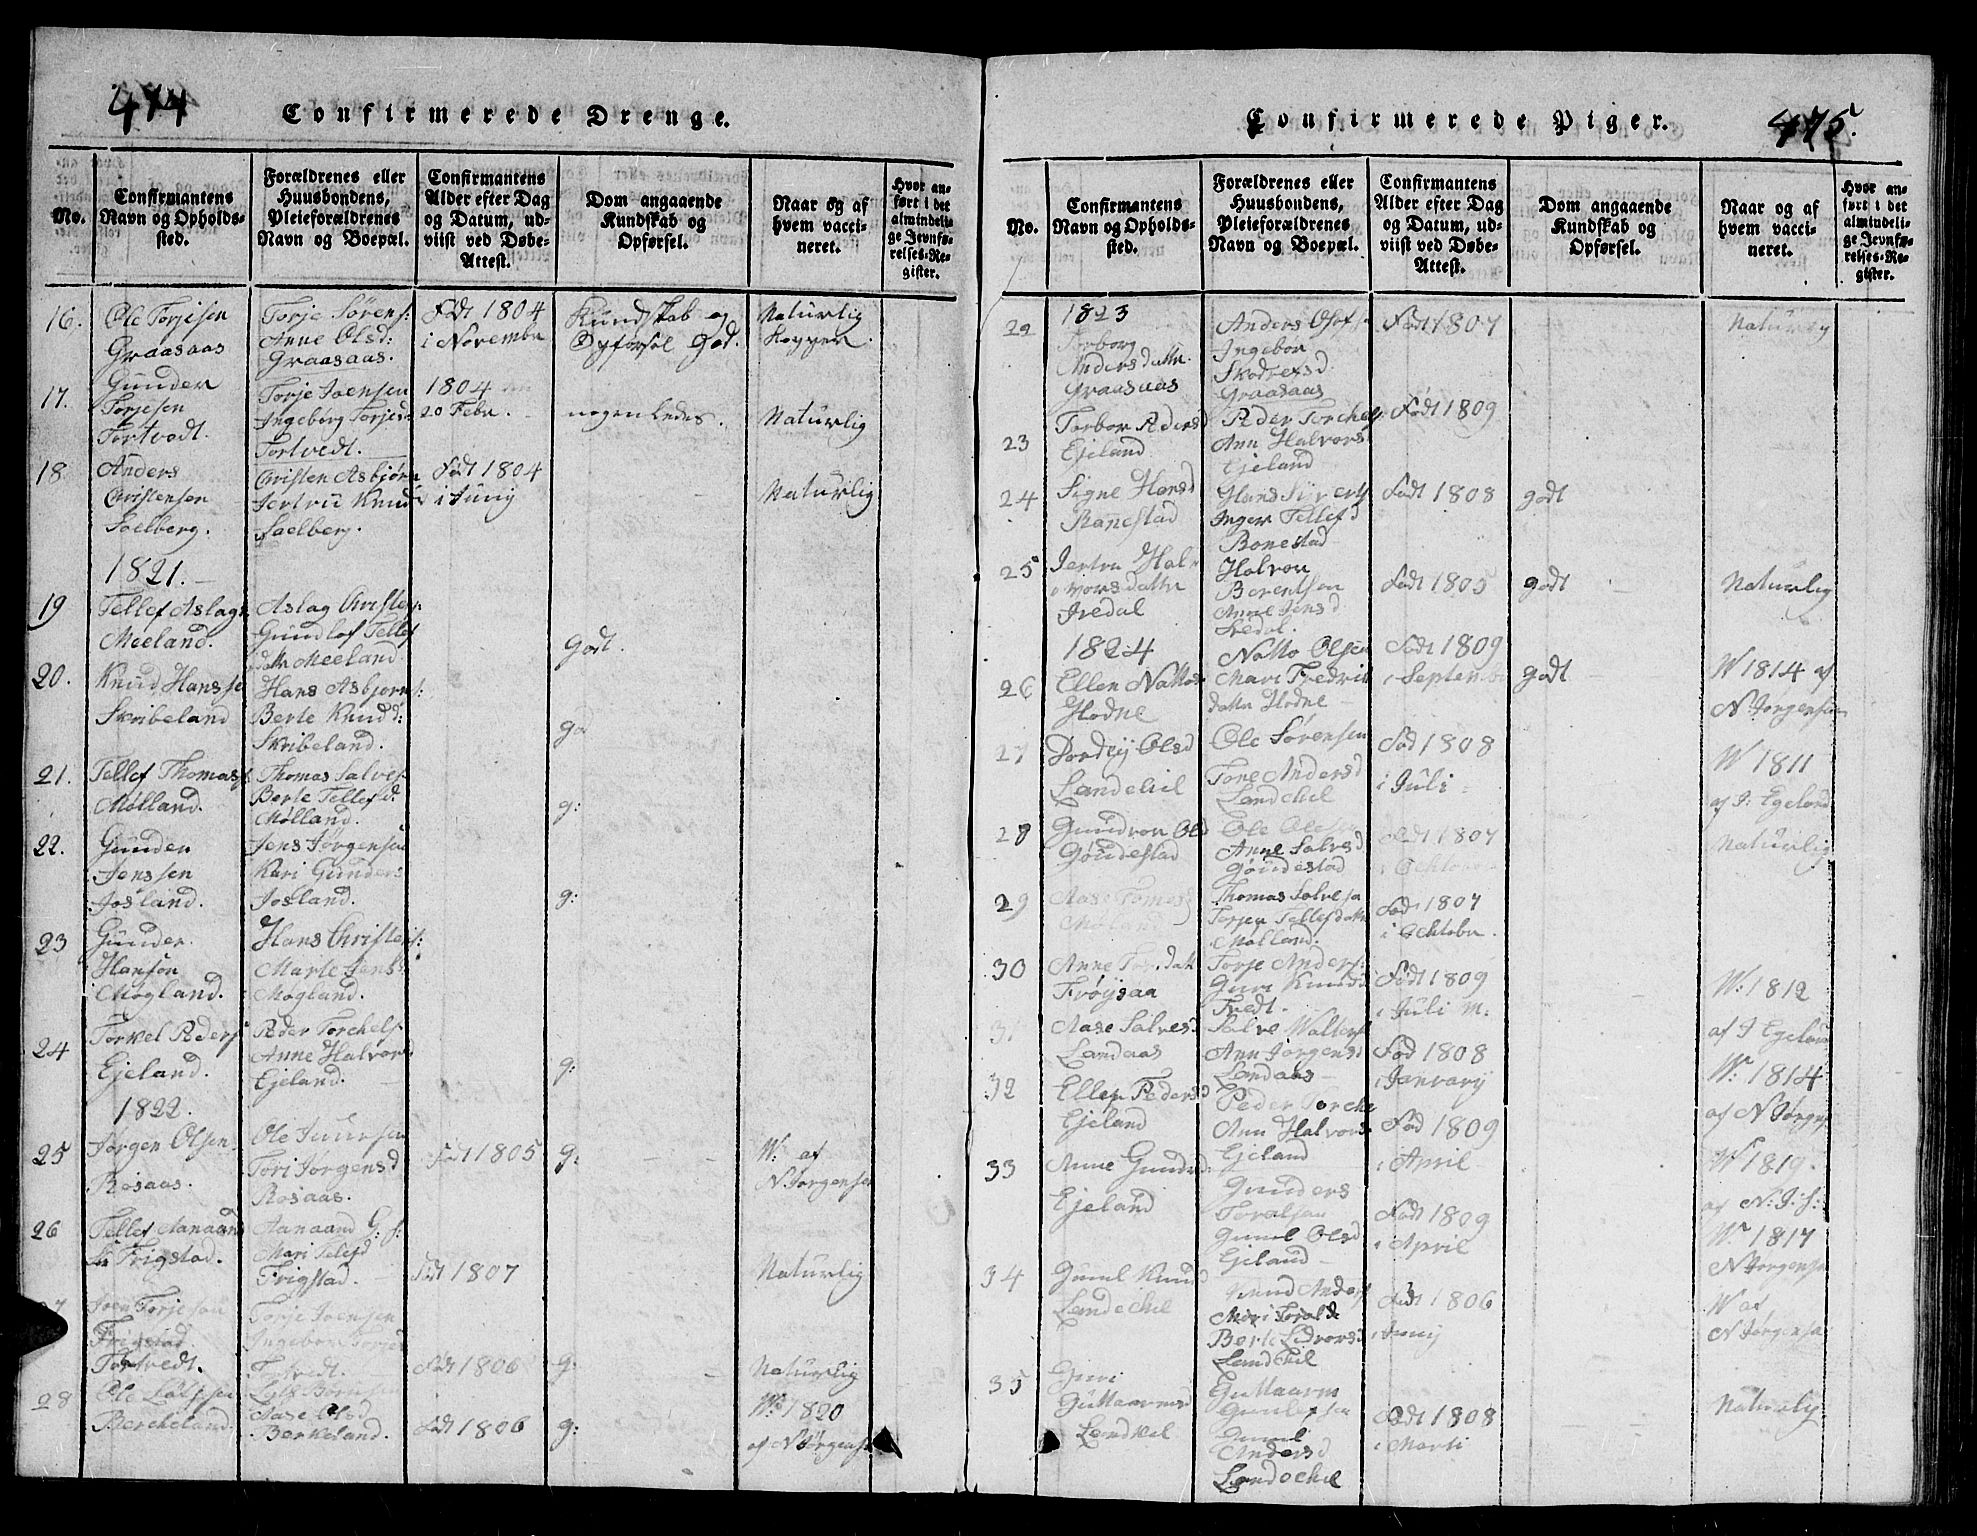 474
Confirmerede Drenge.
No.
Confirmantens Navn og Opholdssted.
Forældrenes eller Huusbondens, Pleieforældrenes Navn og Boepæl.
Confirmantens Alder efter Dag og Datum, udviist ved Døbe-Attest.
Dom angaaende Kundskab og Opførsel.
Naar og af hvem vaccineret.
Hvor anført i det almindelige Jevnførelses-Register.
16.
Ole Torjesen
Graasaas
Torje Sørens:
Anne Olsd:
Graasaas.
Født 1804
i Novembr
Kundskab og
Opførsel god.
Naturlig
Kopper.
17.
Gunder
Torjesen
Tortvedt.
Torje Joensen
Ingeborg Torjed
Tortvedt.
1804
20 Febr.
nogenledes.
Naturlig
18
Anders
Christensen
Saelberg.
Christen Asbjørn
Jertru Knud
Saelberg.
Født 1804
i Juny
Naturlig
1821.
19
Tellef Aslags
Meeland.
Aslag Christens:
Gundlof Tellef
datr Meeland.
Godt.
20.
Knud Hansse
Skribeland
Hans Asbjorns:
Berte Knudd:
Skribeland.
gd
21.
Tellef Thomas
Mølland.
Thomas Salves
Berte Tellefd:
Mølland.
g:
22.
Gunder
Jenssen
Josland.
Jens Jørgensen
Kari Gunders
Josland.
g:
23
Gunder
Hansøn
Møgland.
Hans Christens:
Marte Jens
Møgland.
24
Torkel Peders
Ejeland.
Peder Torchels
Anne Halvord
Ejeland.
g:
1822.
25
Jørgen Olsen
Rosaas.
Ole
Tori Jørgensd
Rosaas.
Født 1805
g:
W: af
N Jørgensen
26
Tellef Aanaand
sn Frigstad.
Aanaand G: s:
Mari Telefd
Frigstad.
Født 1807
Naturlig
Joen Torjesen
Frigstad
Tortvedt.
Torje Joensen
Ingebor Torjed
Tortvedt.
Født 1806
g:
Naturlig
28
Ole
Berkeland.
Aase Olsd
Berkeland.
Født 1806
g:
W: 1820
af N Jørgens
Confirmerede Piger.
475.
No.
Confirmantens Navn og Opholdssted.
Forældrenes eller Huusbondens, Pleieforældrenes Navn og Boepæl.
Confirmantens Alder efter Dag og Datum, udviist ved Døbe-Attest.
Dom angaaende Kundskab og Opførsel.
Naar og af hvem vaccineret.
Hvor anført i det almindelige Jevnførelses-Register.
1823
22
Torborg
Andersdattr
Graasaas
Anders
Ingebor
Graasaas
Født 1807
Naturlig
23
Torbor Pedersd
Ejeland
Peder Torchels
Ann Halvors
Ejeland
Født 1809
24
Signe Hansd
Bonestad
Hans Sivert
Inger Tellefd
Bonestad
Født 1808
godt
25
Jertru Hal-
vorsdattr
Iredal
Halvor
Berentsen
Anne Jensd
Iredal.
Født 1805
godt
Naturlig
1824
26
Ellen Nattos
Hodne
Natto Olsen
Mari Fredrik
datr Hodne
Født 1809
i Septembr
godt
W 1814 af
N Jørgensen
27
Dordey Olsd
Landekil
Ole Sørensen
Tone Andersd
Landekil
Fød 1808
i Juli
W 1811
af J: Egeland
28
Gunvor Olsd
Gøudestad
Ole Olesen
Anne Salvesd
Gøudestad
Født 1807
i Ocktobr
Naturlig
29
Aase Tomas
Møland
Thomas Salvesen
Torjer Tellefdattr
Mølland.
Fød 1807
i Ocktobr.
30
Anne Tor.datr
Frøysaa
Torje Anders:
Guri Knuds
Tvedt.
Født 1809
i Juli M:
W: 1812
af J Egeland
31
Aase Salvesd
Landaas
Salve Walters
Ann Jørgensd
Landaas
Fød 1808
i January
W: 1814
af N Jørgens
32
Ellen Pedersd
Ejeland
Peder Torche
Ann Halvors
Ejeland
Fød 1809
i April
W 1819.
af N: J: s:
33
Anne Gundrd
Ejeland
Gunders
Toralsen
Gunil Olsd
Ejeland
Født 1809
i April
W: 1817
N Jørgensen
34
Gunil Knud
Landekil
Knud Anders
Mari Torald
Berte
Landekil
Født 1806
i Juny
W af
N Jørgensen
35
Guri
Guttaarmsd
Landkil
Guttaarm
Gunlefsen
Gunil
Andersd
Landekil
Født 1808
i Marti
Naturlig